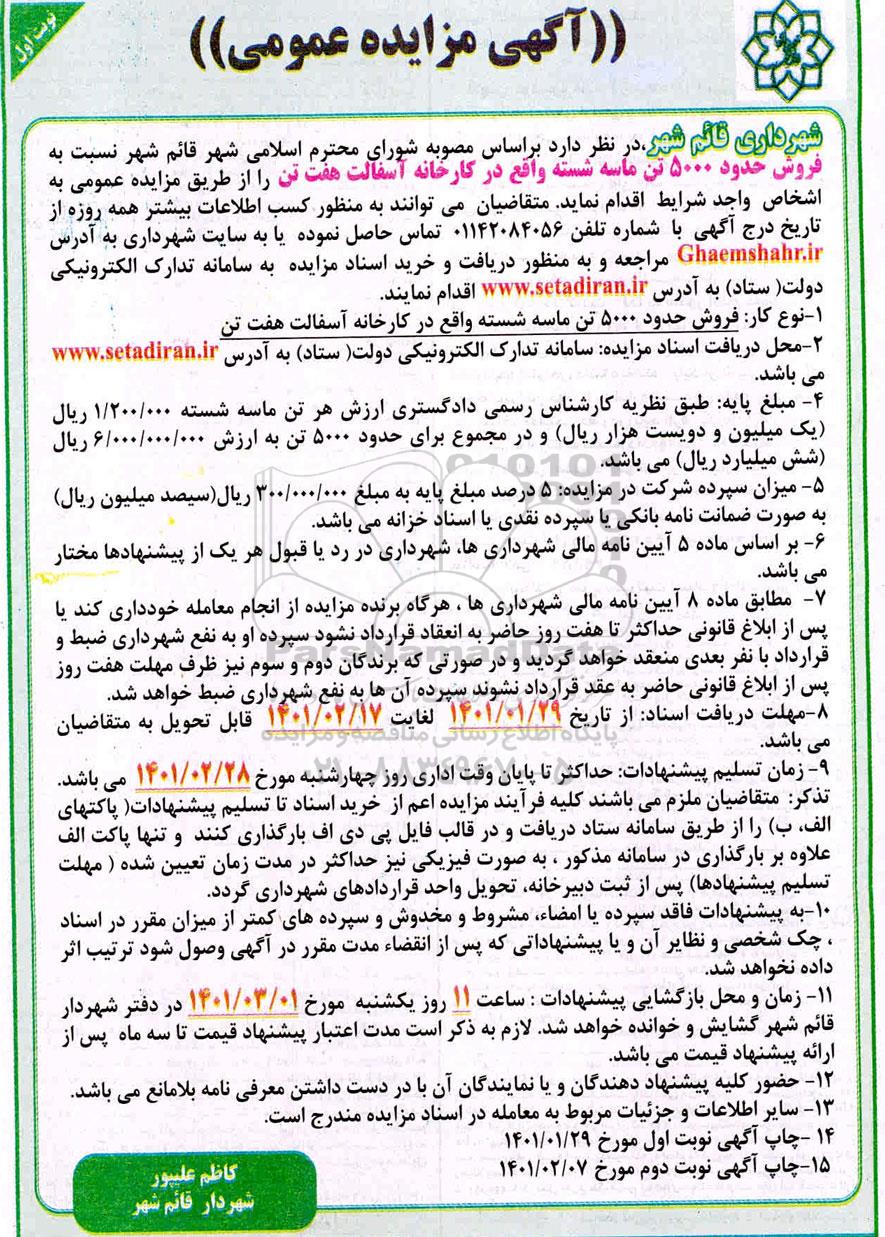 نوبت اول
((آگهی مزایده عمومی))
شهرداری قائم شهر،در نظر دارد براساس مصوبه شورای محترم اسلامی شهر قائم شهر نسبت به
فروش حدود ۵۰۰۰ تن ماسه شسته واقع در کارخانه آسفالت هفت تن را از طریق مزایده عمومی به
اشخاص واجد شرایط اقدام نماید. متقاضیان می توانند به منظور کسب اطلاعات بیشتر همه روزه از
تاریخ درج آگهی با شماره تلفن ۰۱۱۴۲۰۸۴۰۵۶ تماس حاصل نموده یا به سایت شهرداری به آدرس
Ghaemshahr.ir مراجعه و به منظور دریافت و خرید اسناد مزایده به سامانه تدارک الکترونیکی
دولت( ستاد) به آدرس www.setadiran.ir اقدام نمایند.
۱-نوع کار: فروش حدود ۵۰۰۰ تن ماسه شسته واقع در کارخانه آسفالت هفت تن
۲-محل دریافت اسناد مزایده: سامانه تدارک الکترونیکی دولت( ستاد) به آدرس www.setadiran.ir
می باشد.
۴- مبلغ پایه: طبق نظریه کارشناس رسمی دادگستری ارزش هر تن ماسه شسته ۱/۲۰۰/۰۰۰ ریال
(یک میلیون و دویست هزار ریال) و در مجموع برای حدود ۵۰۰۰ تن به ارزش ۶/۰۰۰/۰۰۰/۰۰۰ ریال
(شش میلیارد ریال) می باشد.
۵- میزان سپرده شرکت در مزایده: ۵ درصد مبلغ پایه به مبلغ ۳۰۰/۰۰۰/۰۰۰ ریال(سیصد میلیون ریال)
به صورت ضمانت نامه بانکی یا سپرده نقدی یا اسناد خزانه می باشد.
۶- بر اساس ماده ۵ آیین نامه مالی شهرداری ها، شهرداری در رد یا قبول هر یک از پیشنهادها مختار
می باشد.
۷- مطابق ماده ۸ آیین نامه مالی شهرداری ها ، هرگاه برنده مزایده از انجام معامله خودداری کند یا
پس از ابلاغ قانونی حداکثر تا هفت روز حاضر به انعقاد قرارداد نشود سپرده او به نفع شهرداری ضبط و
قرارداد با نفر بعدی منعقد خواهد گردید و در صورتی که برندگان دوم و سوم نیز ظرف مهلت هفت روز
پس از ابلاغ قانونی حاضر به عقد قرارداد نشوند سپرده آن ها به نفع شهرداری ضبط خواهد شد.
۸-مهلت دریافت اسناد: از تاریخ ۱۴۰۱/۰۱/۲۹ لغایت ۱۴۰۱/۰۲/۱۷ قابل تحویل به متقاضیان
می باشد.
۹- زمان تسلیم پیشنهادات: حداکثر تا پایان وقت اداری روز چهارشنبه مورخ ۱۴۰۱/۰۲/۲۸ می باشد.
تذکر: متقاضیان ملزم می باشند کلیه فرآیند مزایده اعم از خرید اسناد تا تسلیم پیشنهادات( پاکتهای
الف، ب) را از طریق سامانه ستاد دریافت و در قالب فایل پی دی اف بارگذاری کنند و تنها پاکت الف
علاوه بر بارگذاری در سامانه مذکور ، به صورت فیزیکی نیز حداکثر در مدت زمان تعیین شده ( مهلت
تسلیم پیشنهادها) پس از ثبت دبیرخانه، تحویل واحد قراردادهای شهرداری گردد.
۱۰-به پیشنهادات فاقد سپرده یا امضاء، مشروط و مخدوش و سپرده های کمتر از میزان مقرر در اسناد
، چک شخصی و نظایر آن و یا پیشنهاداتی که پس از انقضاء مدت مقرر در آگهی وصول شود ترتیب اثر
داده نخواهد شد.
۱۱- زمان و محل بازگشایی پیشنهادات : ساعت ۱۱ روز یکشنبه مورخ ۱۴۰۱/۰۳/۰۱ در دفتر شهردار
قائم شهر گشایش و خوانده خواهد شد. لازم به ذکر است مدت اعتبار پیشنهاد قیمت تا سه ماه پس از
ارائه پیشنهاد قیمت می باشد.
۱۲- حضور کلیه پیشنهاد دهندگان و یا نمایندگان آن با در دست داشتن معرفی نامه بلامانع می باشد.
۱۳- سایر اطلاعات و جزئیات مربوط به معامله در اسناد مزایده مندرج است.
۱۴ -چاپ آگهی نوبت اول مورخ ۱۴۰۱/۰۱/۲۹
۱۵-چاپ آگهی نوبت دوم مورخ ۱۴۰۱/۰۲/۰۷
کاظم علیپور
شهردار قائم شهر
ParsNamadData
پایگاه اطلاع رسانی مناقصه و مزایده